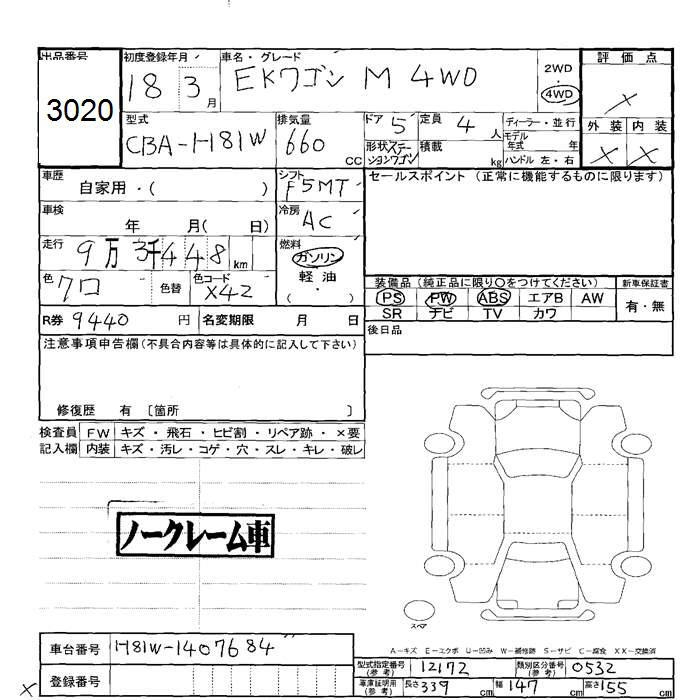 出品番号 初度登録年月 車名・グレード 評価点
3020 18 3月 EKワゴン M 4WD 2WD ・ 4WD ×
型式 排気量 ドア 5 定員 4人 ディーラー・並行 外装 内装
CBA-H81W 660cc 形状ステーションワゴン 積載 kg モデル年式 年 ハンドル 左・右 × ×
車歴 自家用・( ) シフト F5MT セールスポイント (正常に機能するものに限ります)
車検 年 月( 日) 冷房 AC
走行 9万3千448km 燃料 ガソリン
色 クロ 色替 色コード X42 軽油 ・ ( )
装備品(純正品に限り○をつけてください) 新車保証書
PS PW ABS エアB AW 有・無
SR ナビ TV カワ
R券 9440円 名変期限 月 日 後日品
注意事項申告欄(不具合内容等は具体的に記入して下さい)
修復歴 有 〔箇所 〕
検査員 FW キズ・飛石・ヒビ割・リペア跡・×要
記入欄 内装 キズ・汚レ・コゲ・穴・スレ・キレ・破レ
ノークレーム車
スペア
A-キズ E-エクボ U-凹み W-補修跡 S-サビ C-腐食 XX-交換済
車台番号 H81W-1407684
型式指定番号(参考) 12172 類別区分番号(参考) 0532
× 登録番号 車庫証明用(参考) 長さ339cm 幅147cm 高さ155cm